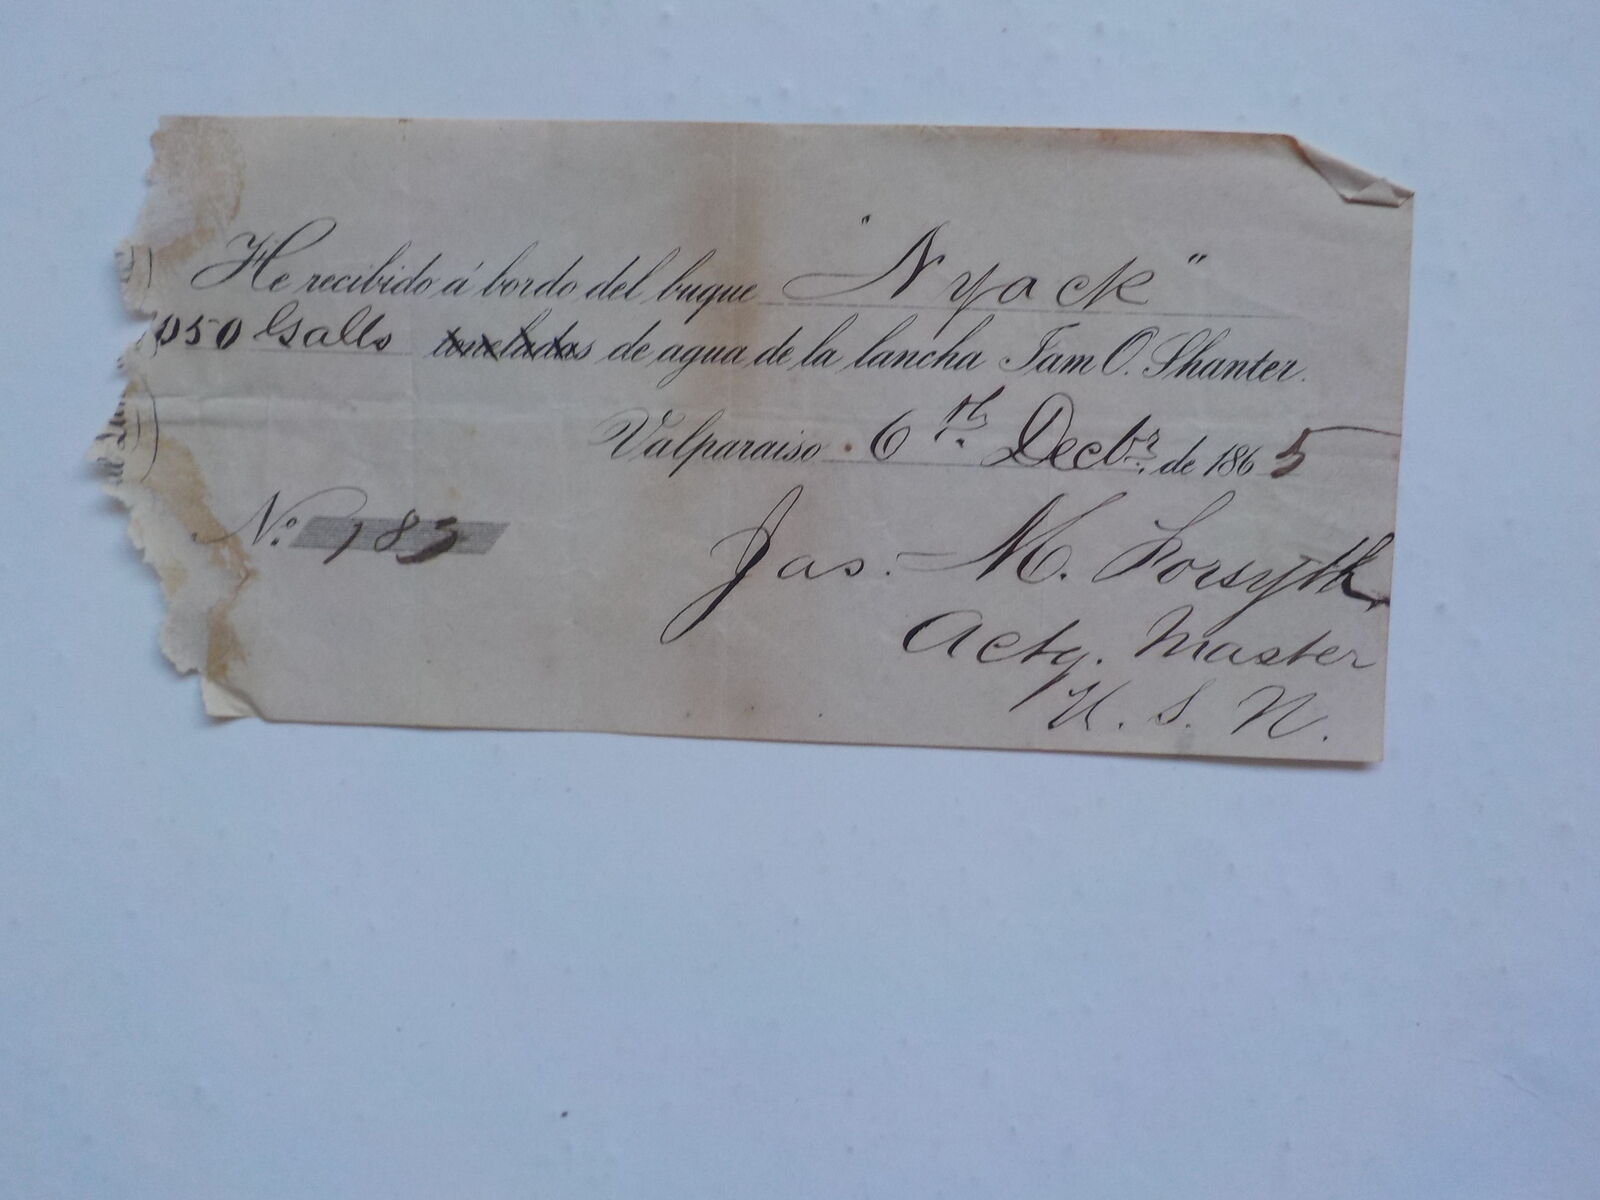 He recibido á bordo del buque "Nyack"
050 Galls toneladas de agua de la lancha Tam O. Shanter.
Valparaiso 6th Decbr. de 1865
No. 183
Jas. M. Forsyth
Actg. Master
U. S. N.